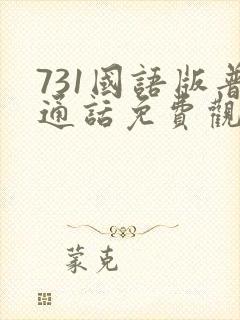 731國語版普
通話免費觀
蒙克